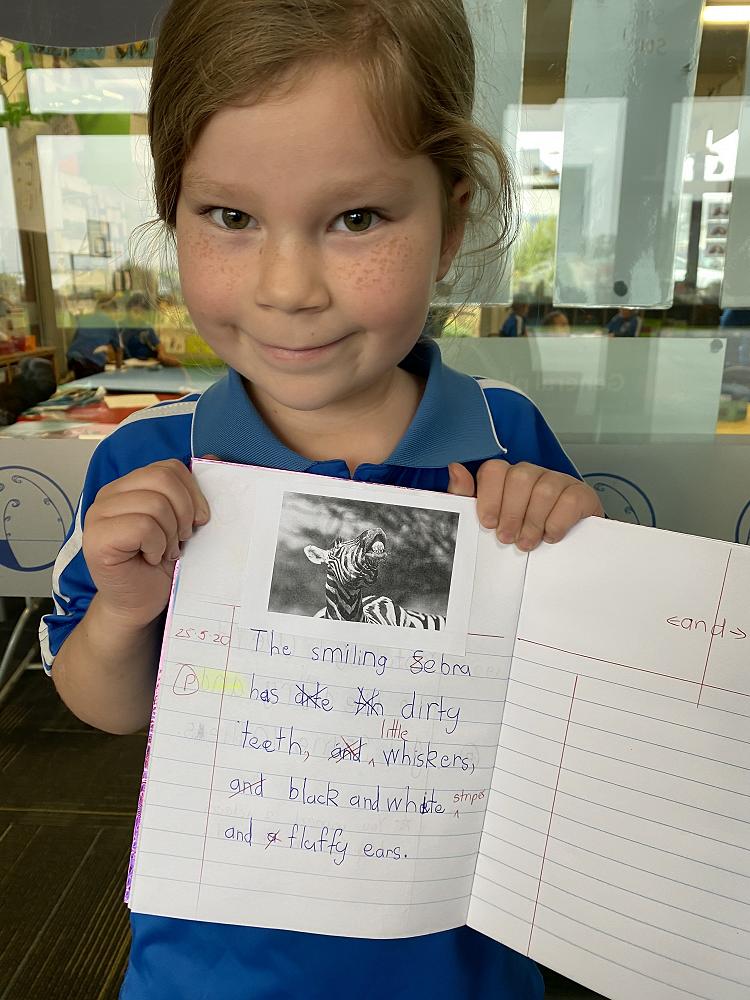 25.5.20 The smiling Zebra
P has dirty
little
teeth, and whiskers,
and black and white stripes
and a fluffy ears.
<and>